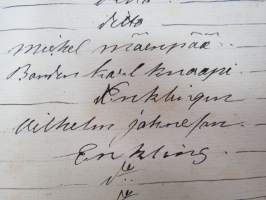 ditto
Michel Mäenpää
Bonden Karl Knaapi
Enklingen
Wilhelm Johnsson
Enkling